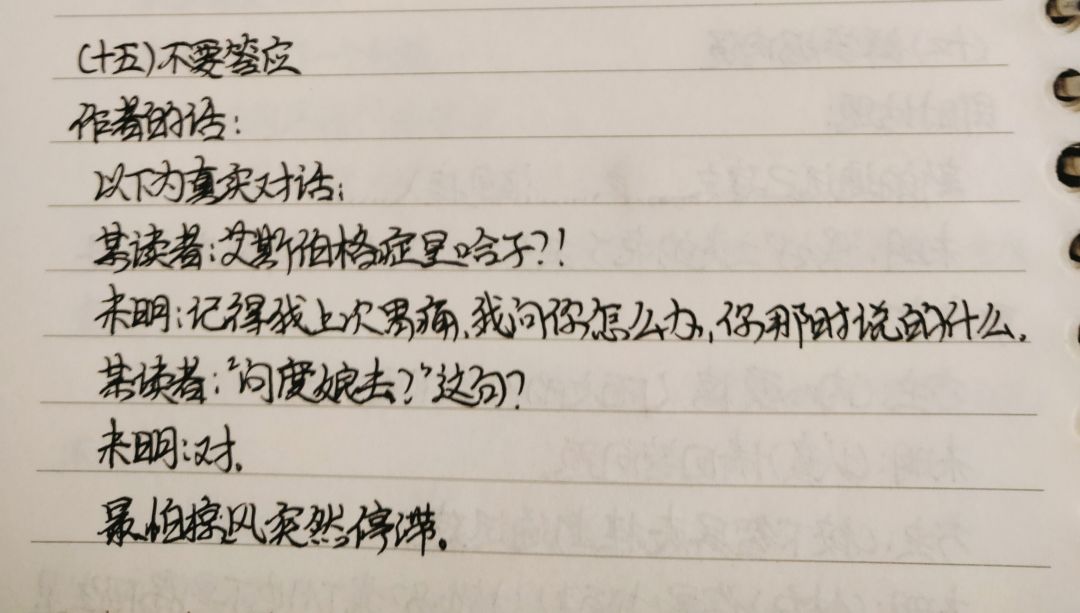 (十五)不要答应
作者的话:
以下为真实对话:
某读者:艾斯伯格症是啥子?!
未明:记得我上次胃痛,我问你怎么办,你那时说的什么.
某读者:“问度娘去?”这句?
未明:对.
最怕空气突然停滞.